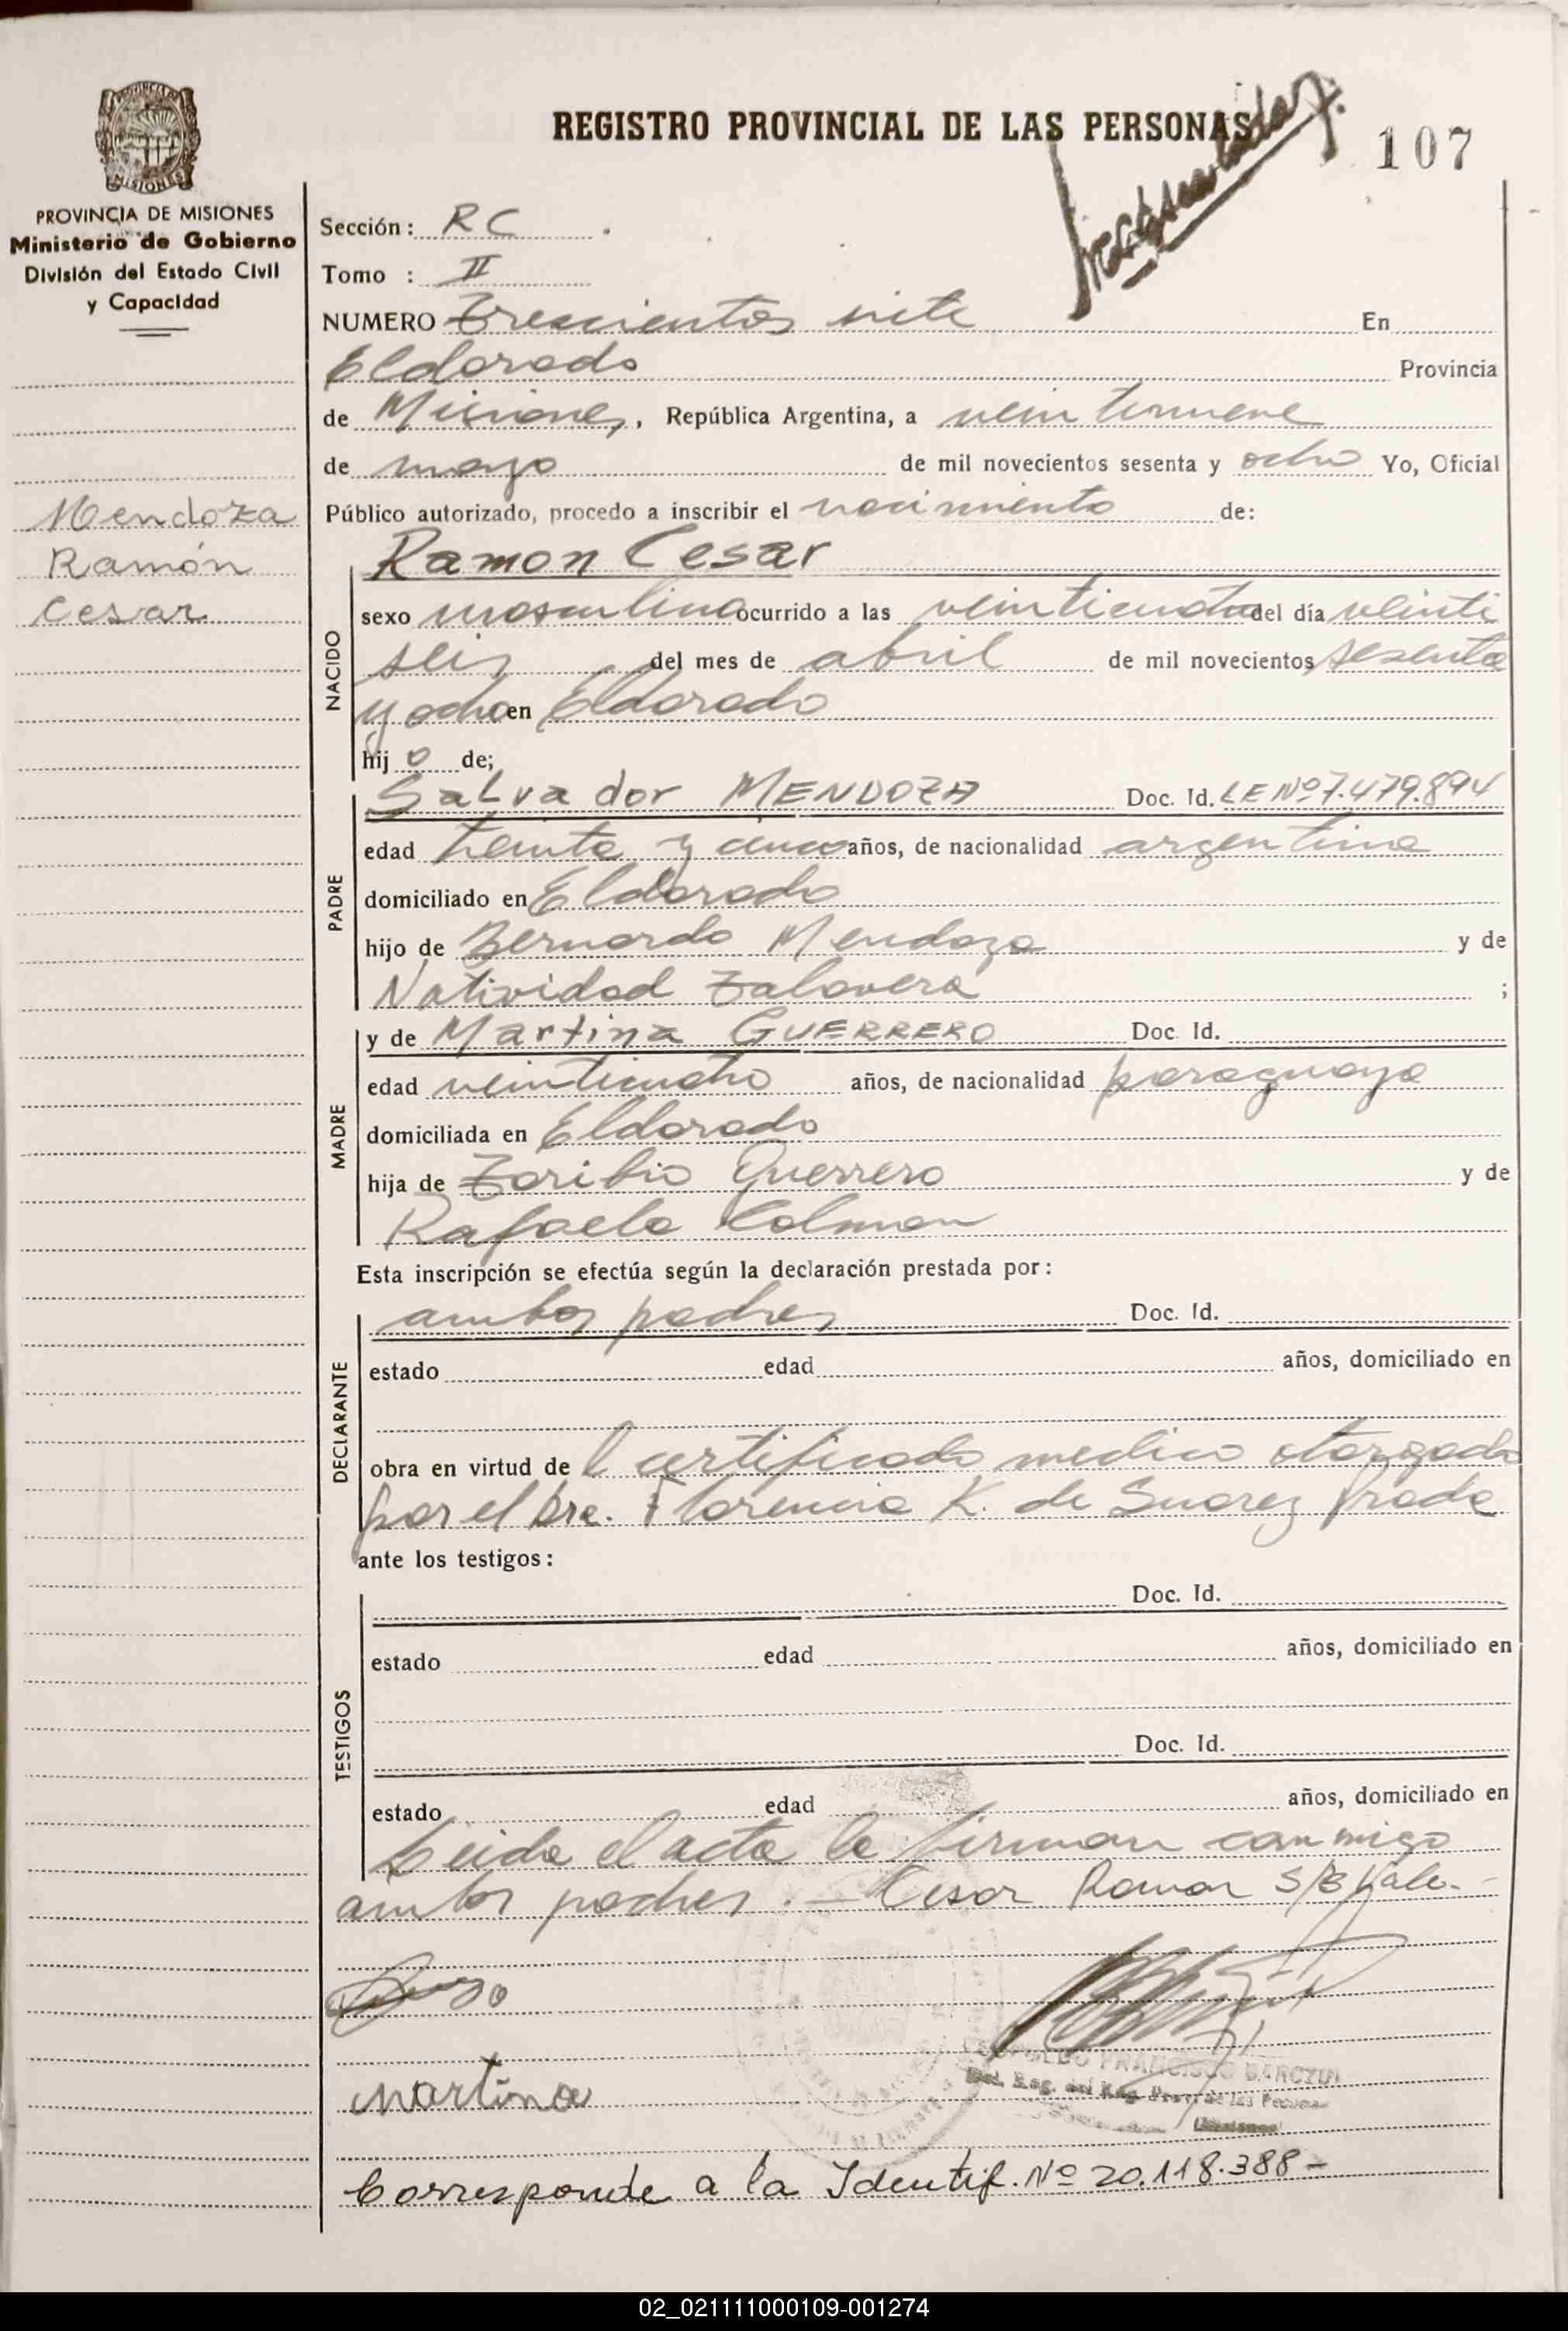 REGISTRO PROVINCIAL DE LAS PERSONAS
107
PROVINCIA DE MISIONES
Ministerio de Gobierno
División del Estado Civil
y Capacidad
Mendoza
Ramón
Cesar
Sección: RC
Tomo : II
NUMERO Trescientos siete En
Eldorado Provincia
de Misiones, República Argentina, a veintinueve
de mayo de mil novecientos sesenta y ocho Yo, Oficial
Público autorizado, procedo a inscribir el nacimiento de:
NACIDO
Ramon Cesar
sexo masculino ocurrido a las veinticuatro del día veinti
seis del mes de abril de mil novecientos sesenta
y ocho en Eldorado
hij o de;
PADRE
Salvador MENDOZA Doc. Id. LE Nº 7.479.894
edad treinta y cinco años, de nacionalidad argentina
domiciliado en Eldorado
hijo de Bernardo Mendoza y de
Natividad Talavera ;
MADRE
y de Martina GUERRERO Doc. Id.
edad veinticuatro años, de nacionalidad paraguaya
domiciliada en Eldorado
hija de Toribio Guerrero y de
Rafaela Colman
Esta inscripción se efectúa según la declaración prestada por:
DECLARANTE
ambos padres Doc. Id.
estado edad años, domiciliado en
obra en virtud de l certificado medico otorgado
por el Dra. Florencia K. de Suarez Prada
ante los testigos:
TESTIGOS
Doc. Id.
estado edad años, domiciliado en
Doc. Id.
estado edad años, domiciliado en
Leida el acta la firman conmigo
ambos padres. — Cesar Ramon S/B Vale.-
Martina
FRANCISCO
Corresponde a la Identif. Nº 20.118.388-
02_021111000109-001274